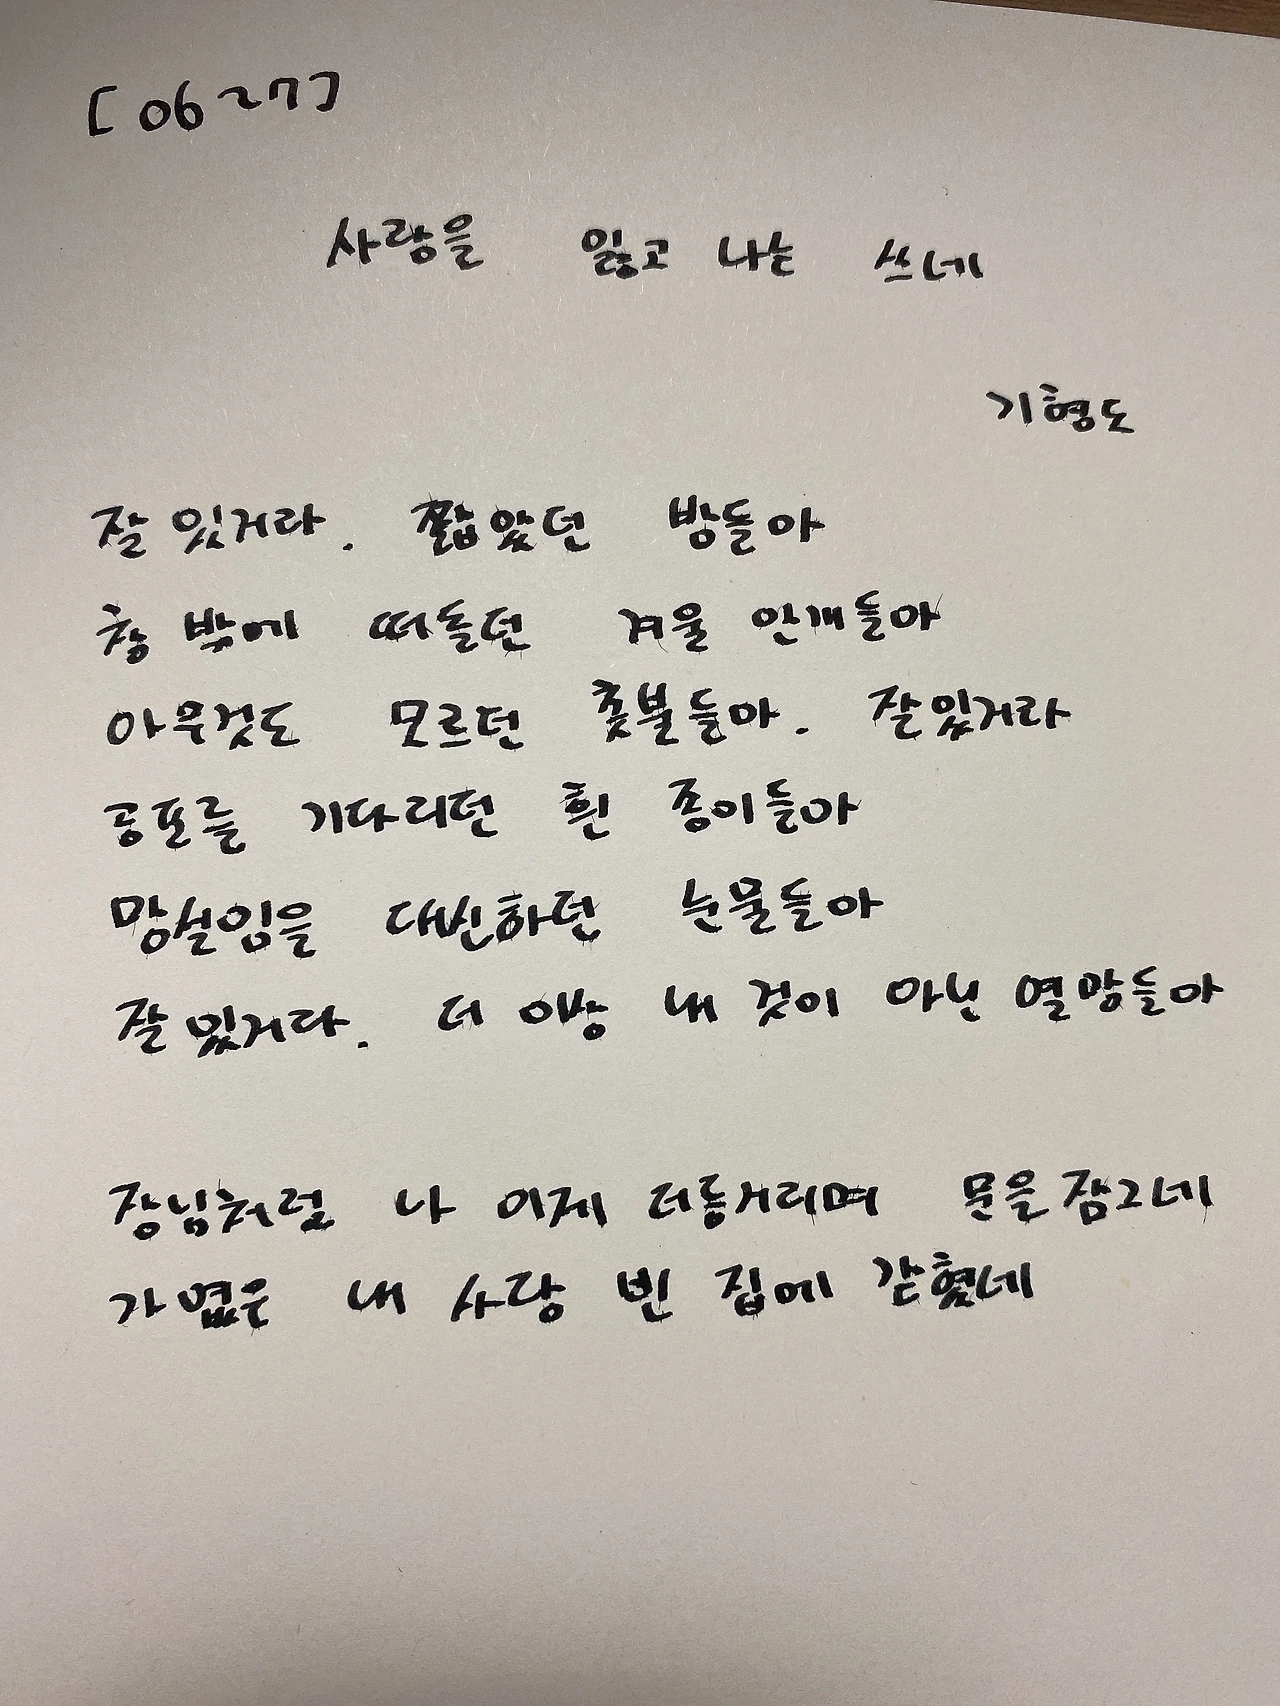 [0627]
사랑을 잃고 나는 쓰네
기형도
잘 있거라. 짧았던 밤들아
창 밖에 떠돌던 겨울 안개들아
아무것도 모르던 촛불들아. 잘 있거라
공포를 기다리던 흰 종이들아
망설임을 대변하던 눈물들아
잘 있거라. 더 이상 내 것이 아닌 열망들아
장님처럼 나 이제 더듬거리며 문을 잠그네
가엾은 내 사랑 빈 집에 갇혔네